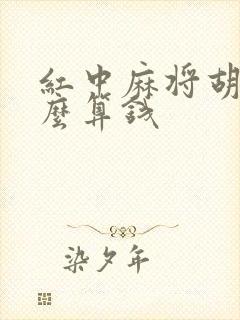 红中麻将胡
麼算钱
染夕年